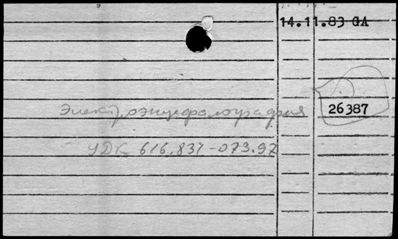 14.11.83 GA
Электроэнцефалография
26387
УДК 616.831-073.97